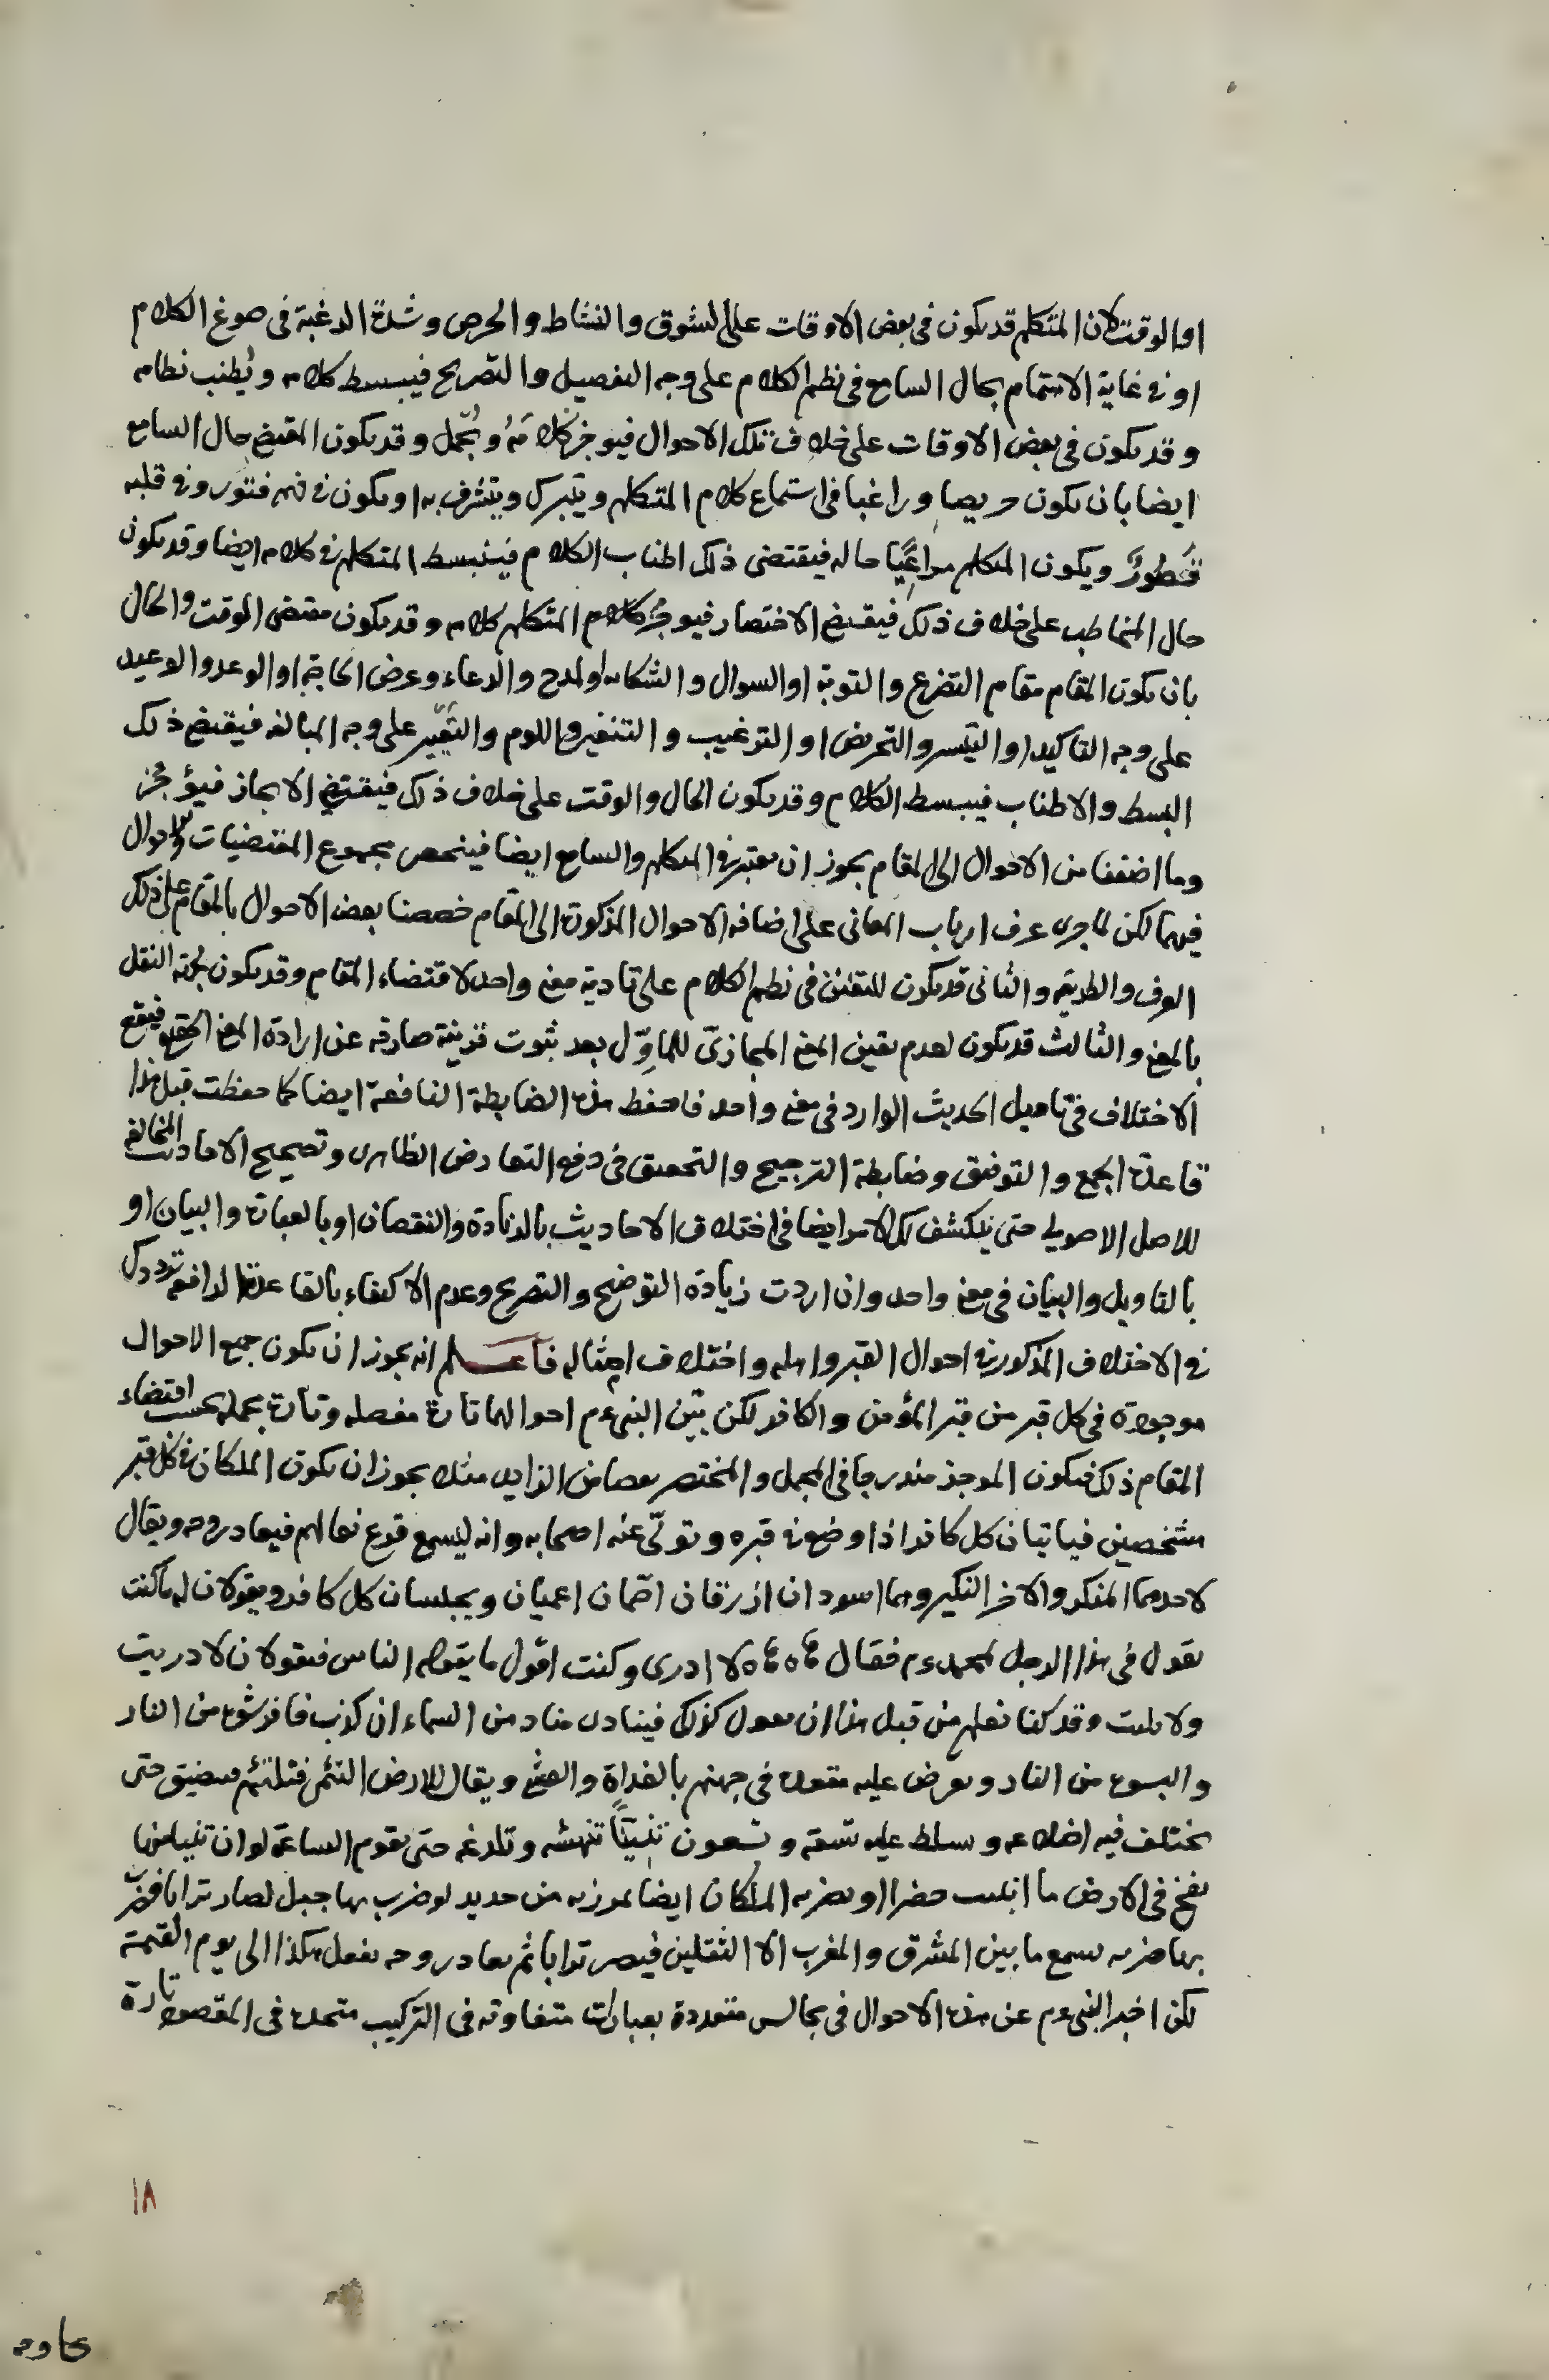 او الوقت لان المتكلم قد يكون فى بعض الاوقات على الشوق والنشاط والحرص وشدة الرغبة فى صوغ الكلام
او فى غاية الاهتمام بحال السامع فى نظم الكلام على وجه التفصيل والتصريح فيبسط كلامه ويُطنب نظامه
وقد يكون فى بعض الاوقات على خلاف تلك الاحوال فيوجز كلامَهُ ويُجمل وقد يكون المقتضى حال السامع
ايضا بان يكون حريصا وراغبا فى استماع كلام المتكلم ويتبرك ويتشرف به او يكون فى فهمه فتور وفى قلبه
قُطورٌ ويكون المتكلم مراعِيًا حاله فيقتضى ذلك اطناب الكلام فينبسط المتكلم فى كلامه ايضا وقد يكون
حال المخاطب على خلاف ذلك فيقتضى الاختصار فيوجز كلام المتكلم كلامه وقد يكون مقتضى الوقت والحال
بان يكون المقام مقام التضرع والتوبة او السوال والشكاية او المدح والدعاء وعرض الحاجة او الوعد والوعيد
على وجه التاكيد او التيسير والتحريض او الترغيب والتنفير واللوم والتغيّر على وجه المبالغه فيقتضى ذلك
البسط والاطناب فيبسط الكلام وقد يكون الحال والوقت على خلاف ذلك فيقتضى الايجاز فيؤجز
وما اضفنا من الاحوال الى المقام يجوز ان يعتبر فى المتكلم والسامع ايضا فينحصر مجموع المقتضيات والاحوال
فيهما لكن لما جرى عرف ارباب المعانى على اضافه الاحوال المذكورة الى المقام خصصنا بعض الاحوال بالمقام على ذلك
العرف والطريقه والثانى قد يكون للتفنن فى نظم الكلام على تادية معنى واحد لاقتضاء المقام وقد يكون لجهة النقل
بالمعنى والثالث قد يكون لعدم تعين المعنى المجازىّ للماوِّل بعد ثبوت قرينة صارفه عن ارادة المعنى الحقيقى فيقع
الاختلاف فى تاويل الحديث الوارد فى معنى واحد فاحفظ هذه الضابطة النافعة ايضا كما حفظت قبل هذا
قاعدة الجمع والتوفيق وضابطة الترجيح والتحقيق فى دفع التعارض الظاهرى وتصحيح الاحاديث المخالفه
للاصل الاصولى حتى ينكشف لك الامر ايضا فى اختلاف الاحاديث بالزيادة والنقصان او بالعبارة والبيان او
بالتاويل والبيان فى معنى واحد وان اردت زيادة التوضيح والتصريح وعدم الاكتفاء بالقاعدة الدافعه ترددك
فى الاختلاف المذكور فى احوال القبر واهله واختلاف امثاله فاعـــلم انه يجوز ان يكون جميع الاحوال
موجودة فى كل قبر من قبر المؤمن والكافر لكن بيّن النبى عم احوالهما تارة مفصله وتارة مجمله بحسب اقتضاء
المقام ذلك فيكون الموجز مندرجا فى المجمل والمختصر بعضا من الزايد مثلا يجوز ان يكون الملكان فى كل قبر
مشخصين فياتيان كل كافر اذا وضع فى قبره وتولّى عنه اصحابه وانه ليسمع قرع نعالهم فيعاد روحه ويقال
لاحدهما المنكر والاخر النكير وهما اسودان ازرقان اصمّان اعميان ويجلسان كل كافر ويقولان له ما كنت
تقول فى هذا الرجل لمحمد عم فقال هاه هاه لا ادرى وكنت اقول ما يقوله الناس فيقولان لا دريت
ولا تليت وقد كنا نعلم من قبل هذا ان تقول كذلك فينادى مناد من السماء ان كذب فافرشوه من النار
والبسوه من النار ويعرض عليه مقعده فى جهنم بالغداة والعشى ويقال للارض التئمى فتلتئم فيضيق حتى
يختلف فيه اضلاعه وسلط عليه تسعة وتسعون تنينًا تنهشه وتلدغه حتى يقوم الساعة لو ان تنينا منها
نفخ فى الارض ما انبتت خضرا او يضربه الملكان ايضا بمرزبه من حديد لو ضرب بها جبل لصار ترابا فيضرب
بها ضربه يسمع ما بين المشرق والمغرب الا الثقلين فيصير ترابا ثم يعاد روحه يفعل هكذا الى يوم القيمة
لكن اخبر النبى عم عن هذه الاحوال فى مجالس متعددة بعبارات متفاوته فى التركيب متحدة فى المقصود تارة
١٨